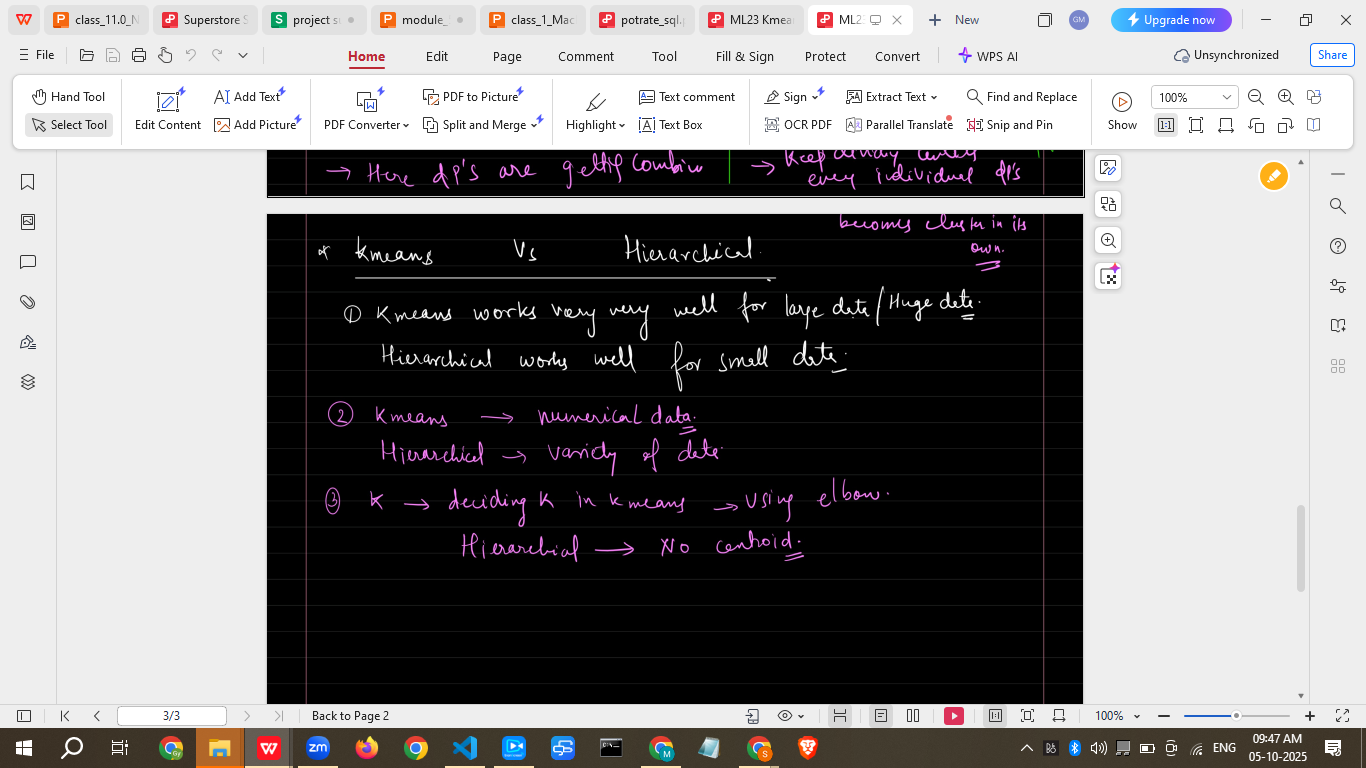 class_11.0_N
Superstore S
project su
module_
class_1_Mac
potrate_sql.p
ML23 Kmea
ML2
New
GM
Upgrade now
File
Home
Edit
Page
Comment
Tool
Fill & Sign
Protect
Convert
WPS AI
Unsynchronized
Share
Hand Tool
Select Tool
Edit Content
Add Text
Add Picture
PDF Converter
PDF to Picture
Split and Merge
Highlight
Text comment
Text Box
Sign
OCR PDF
Extract Text
Parallel Translate
Find and Replace
Snip and Pin
Show
100%
→ Here dp's are gettig combin
→ Keep dividing
every individual dp's
becomes cluster in its
own.
* Kmeans Vs Hierarchical.
① Kmeans works very very well for large data / Huge data.
Hierarchical works well for small data.
② Kmeans → numerical data.
Hierarchical → Variety of data
③ K → deciding K in kmeans → using elbow.
Hierarchial → No centroid.
3/3
Back to Page 2
100%
ENG
09:47 AM
05-10-2025